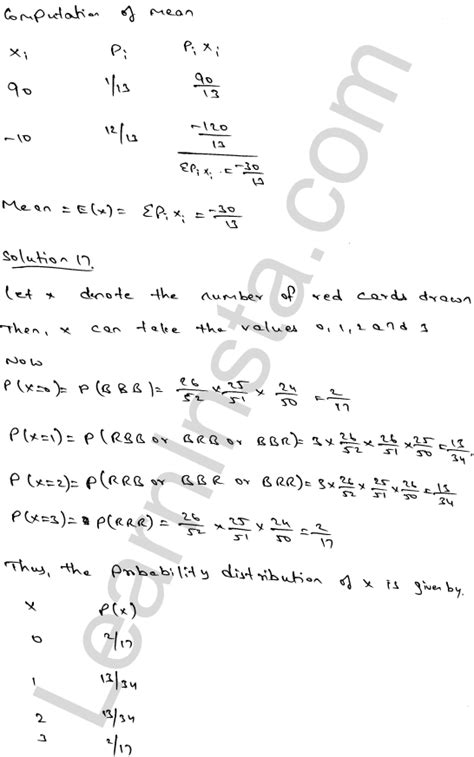 Computation of mean
xi Pi Pi xi
90 1/13 90/13
-10 12/13 -120/13
ΣPi xi = -30/13
Mean = E(x) = ΣPi xi = -30/13
Solution 17.
Let x denote the number of red cards drawn
Then, x can take the values 0, 1, 2 and 3
Now
P(x=0) = P(BBB) = 26/52 × 25/51 × 24/50 = 2/17
P(x=1) = P(RBB or BRB or BBR) = 3 × 26/52 × 26/51 × 25/50 = 13/34.
P(x=2) = P(RRB or BBR or BRR) = 3 × 26/52 × 25/51 × 26/50 = 13/34
P(x=3) = P(RRR) = 26/52 × 25/51 × 24/50 = 2/17
Thus, the probability distribution of x is given by.
x P(x)
0 2/17
1 13/34
2 13/34
3 2/17
LearnInsta.com